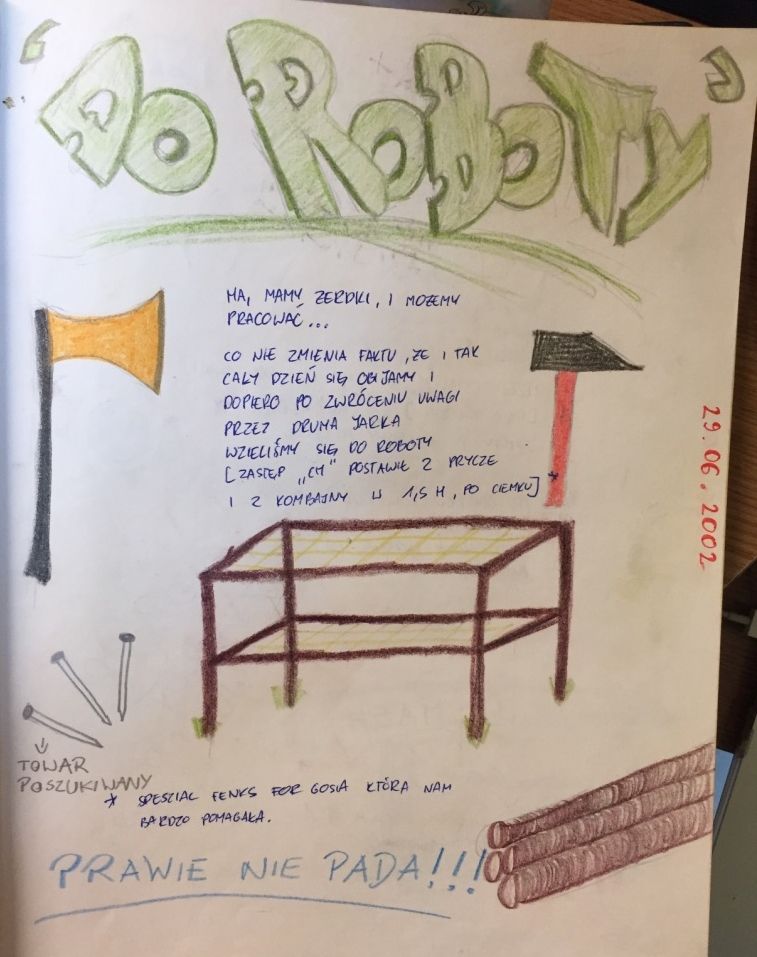 "DO ROBOTY"
HA, MAMY ŻERDKI, I MOŻEMY
PRACOWAĆ...
CO NIE ZMIENIA FAKTU, ŻE I TAK
CAŁY DZIEŃ SIĘ OBIJAMY I
DOPIERO PO ZWRÓCENIU UWAGI
PRZEZ DRUHA JARKA
WZIELIŚMY SIĘ DO ROBOTY
[ZASTĘP „CH" POSTAWIŁ 2 PRYCZE
I 2 KOMBAJNY W 1,5 H, PO CIEMKU] *
29.06.2002
TOWAR
POSZUKIWANY
* SPESZIAL FENKS FOR GOSIA KTÓRA NAM
BARDZO POMAGAŁA.
PRAWIE NIE PADA!!!